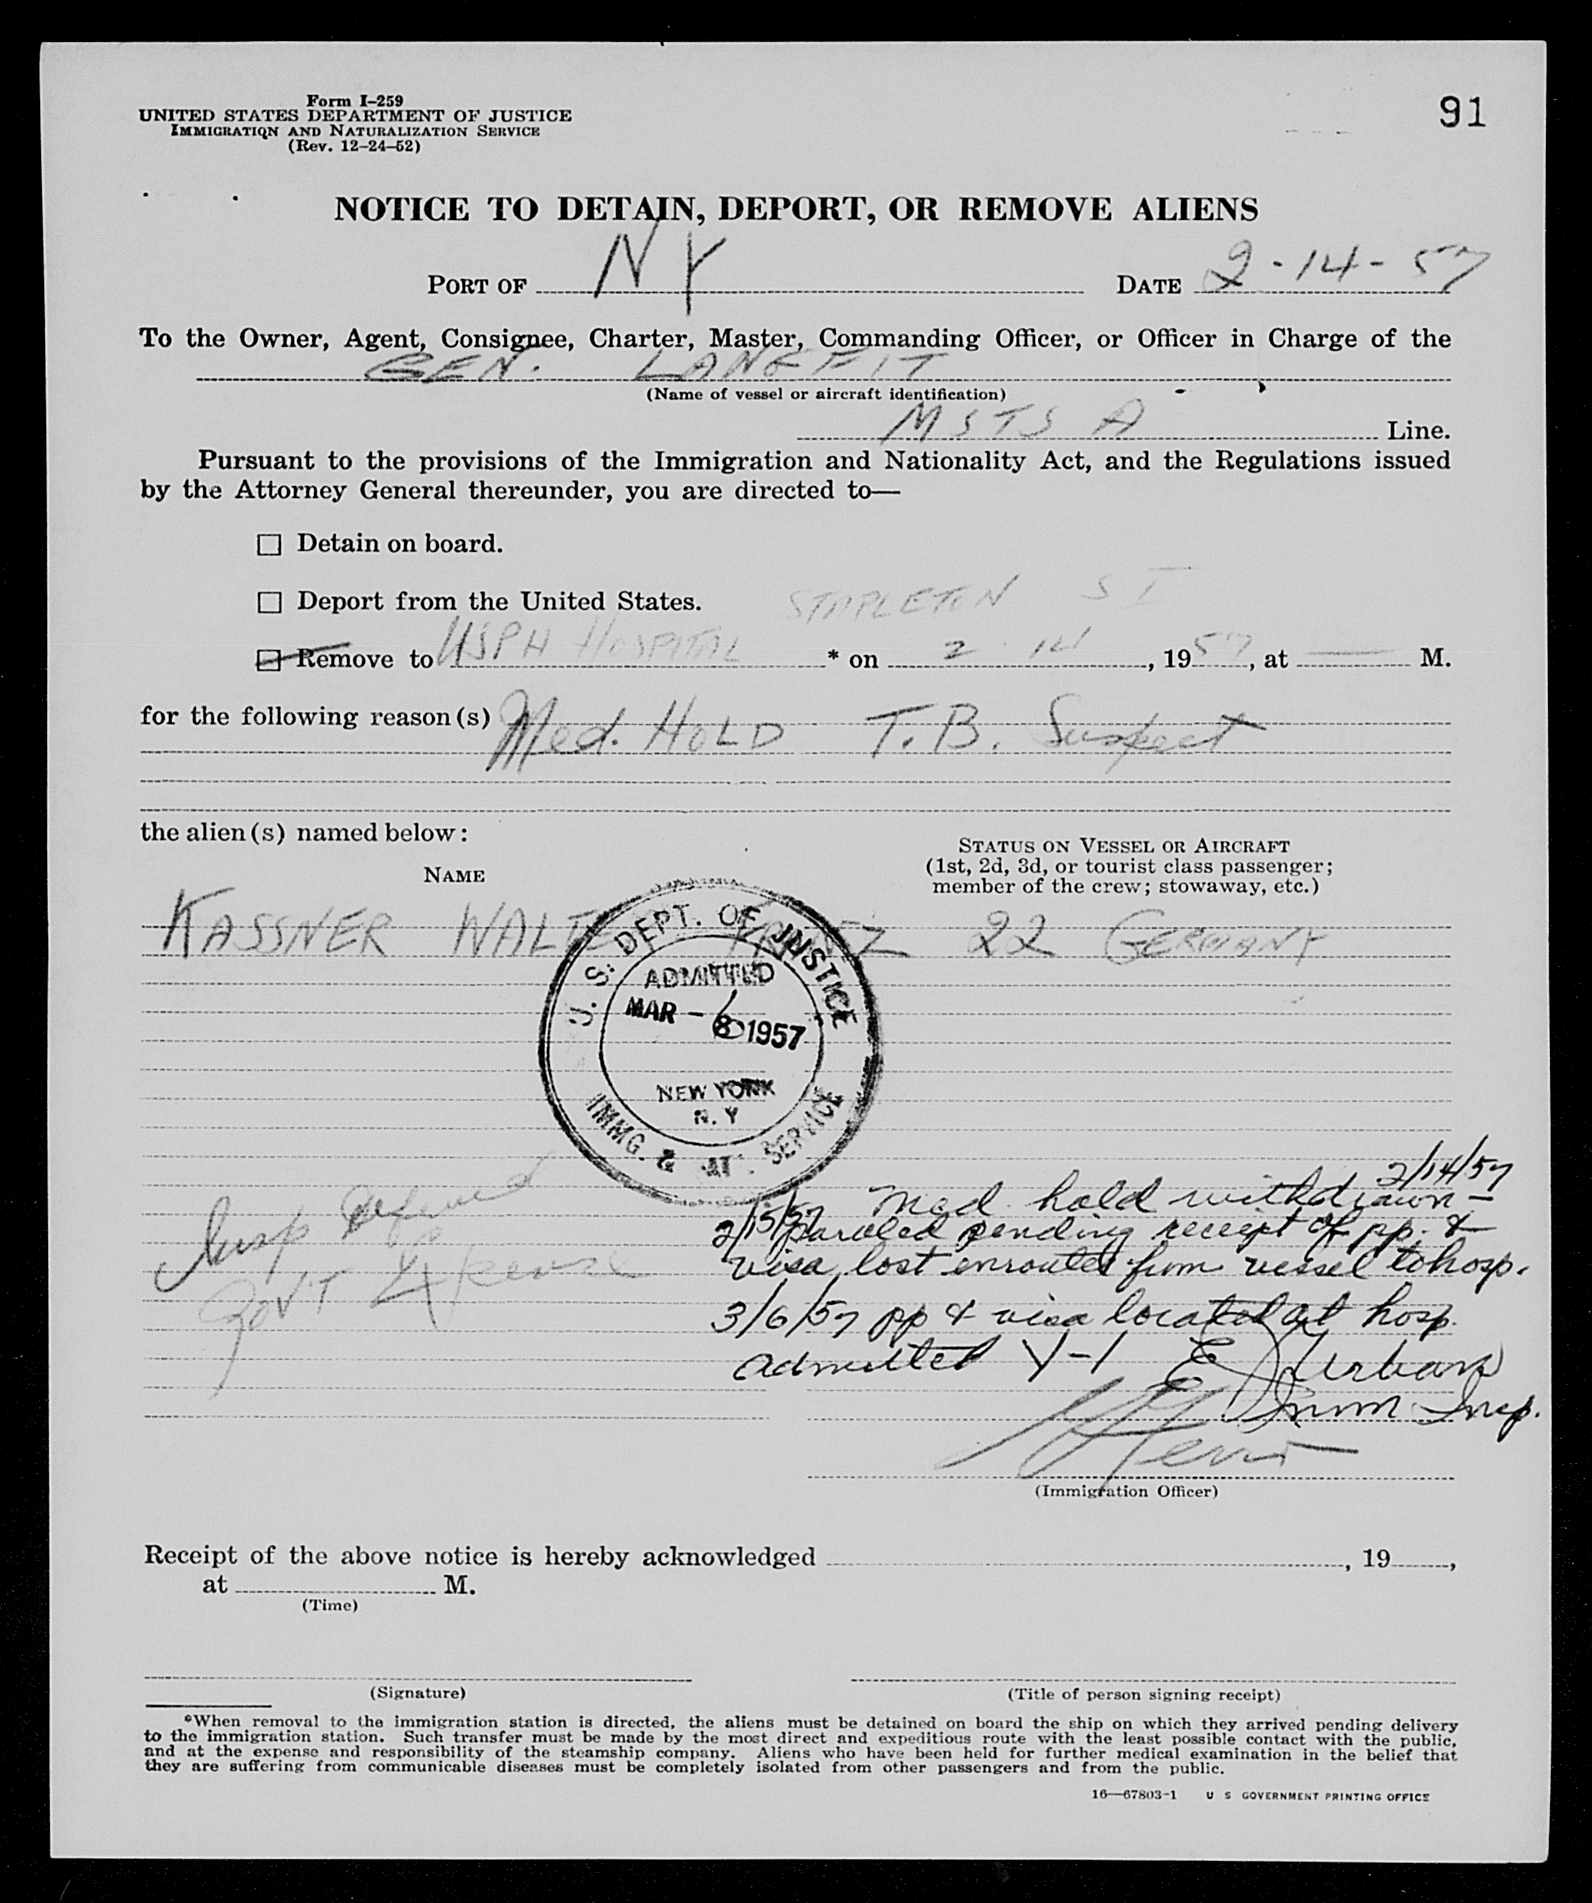 Form I-259
UNITED STATES DEPARTMENT OF JUSTICE
IMMIGRATION AND NATURALIZATION SERVICE
(Rev. 12-24-52)
91
NOTICE TO DETAIN, DEPORT, OR REMOVE ALIENS
PORT OF NY DATE 2-14-57
To the Owner, Agent, Consignee, Charter, Master, Commanding Officer, or Officer in Charge of the
GEN. LANGFIT
(Name of vessel or aircraft identification)
MSTS A Line.
Pursuant to the provisions of the Immigration and Nationality Act, and the Regulations issued
by the Attorney General thereunder, you are directed to—
☐ Detain on board.
☐ Deport from the United States.
STAPLETON S I
Remove to USPH HOSPITAL * on 2 14, 1957, at — M.
for the following reason(s) Med. HOLD T.B. Suspect
the alien(s) named below:
NAME
STATUS ON VESSEL OR AIRCRAFT
(1st, 2d, 3d, or tourist class passenger;
member of the crew; stowaway, etc.)
KASSNER WALTER FRANZ 22 GERMANY
U. S. DEPT. OF JUSTICE
ADMITTED
MAR - 6 1957
NEW YORK
N. Y
IMMG. & NAT. SERVICE
Insp Deferred
Gov't Expense
2/14/57
Med hold withdrawn -
2/15/57 paroled pending receipt of pp. &
visa lost enroute from vessel to hosp.
3/6/57 pp & visa located at hosp.
admitted V-1 E J Urban
Imm Insp.
(Immigration Officer)
Receipt of the above notice is hereby acknowledged , 19 ,
at M.
(Time)
(Signature)
(Title of person signing receipt)
*When removal to the immigration station is directed, the aliens must be detained on board the ship on which they arrived pending delivery
to the immigration station. Such transfer must be made by the most direct and expeditious route with the least possible contact with the public,
and at the expense and responsibility of the steamship company. Aliens who have been held for further medical examination in the belief that
they are suffering from communicable diseases must be completely isolated from other passengers and from the public.
16—67803-1 U S GOVERNMENT PRINTING OFFICE